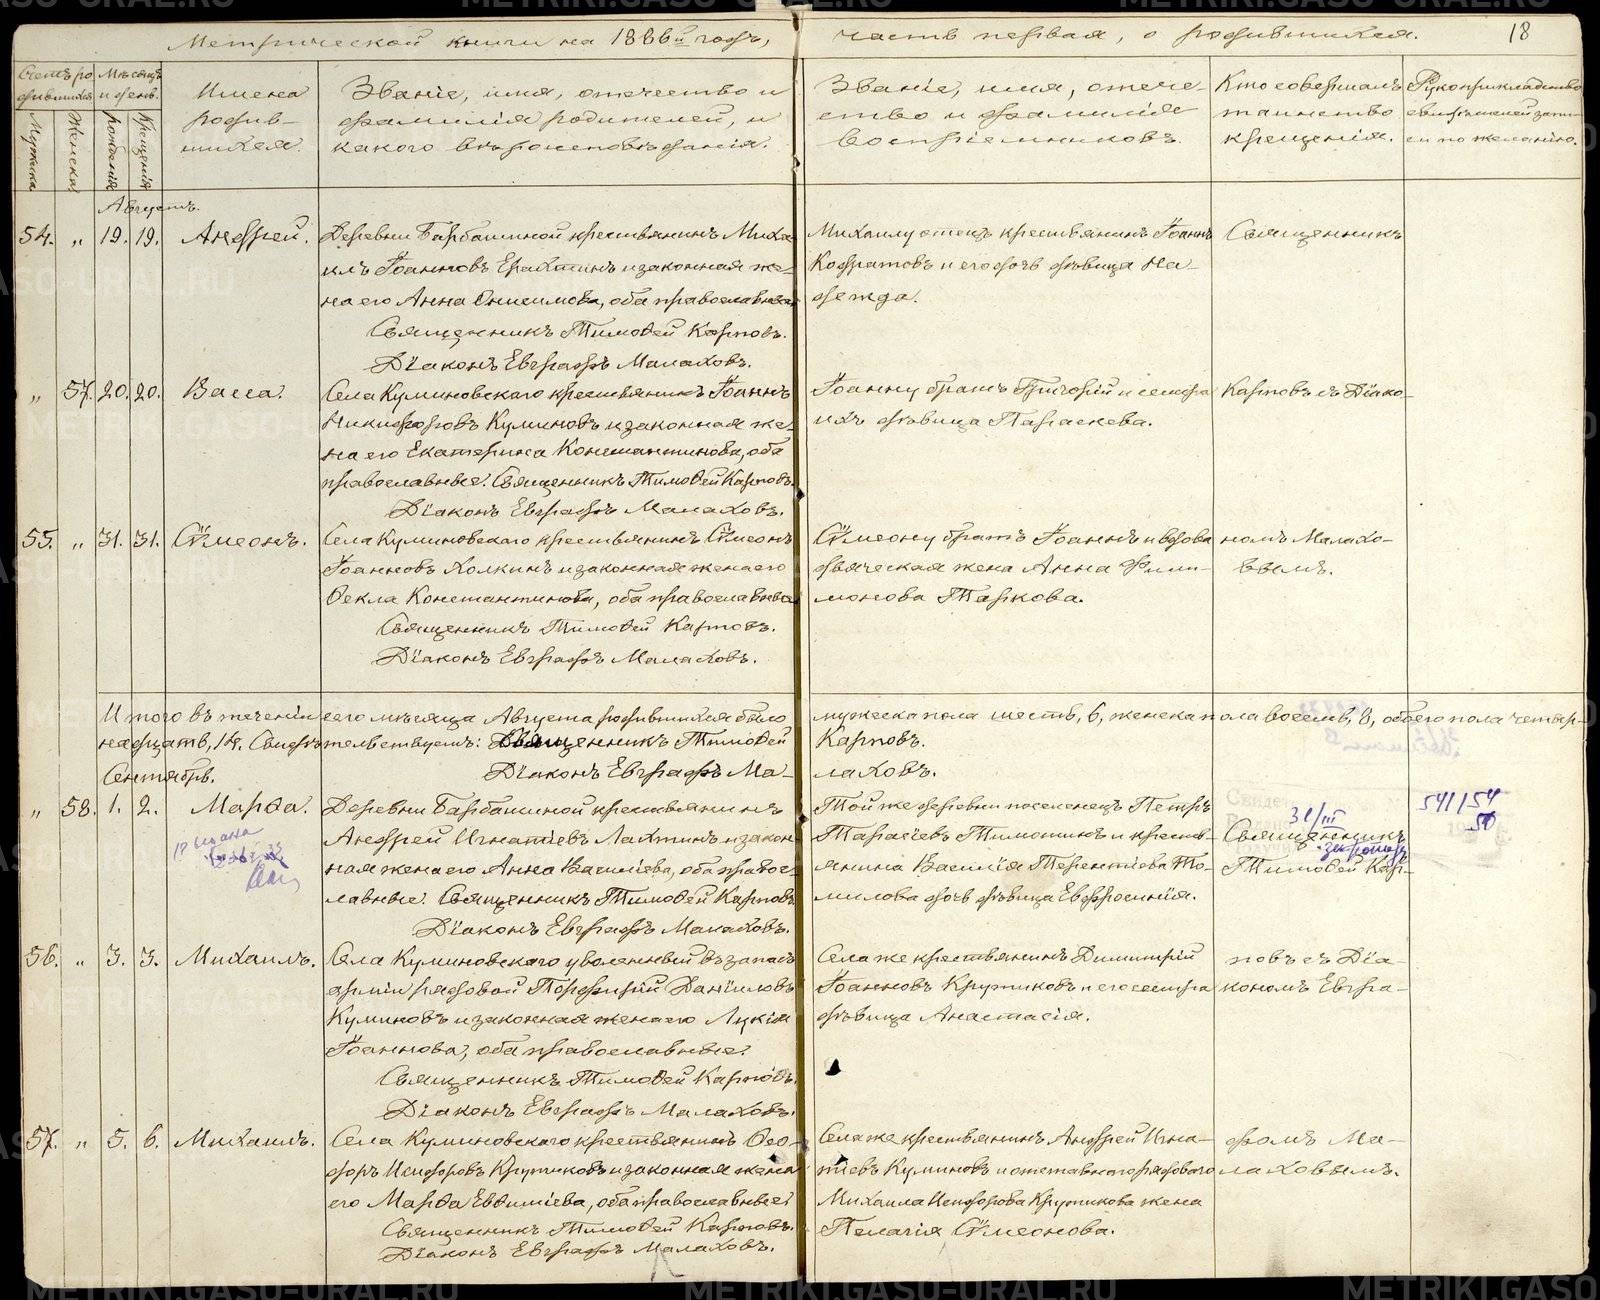 Метрической книги на 1886й годъ,
часть первая, о родившихся.
18
Счетъ родившихся
Мужска
Женска
Мѣсяцъ и день.
рожденія
Крещенія
Имена родив-
шихся.
Званіе, имя, отечество и
фамилія родителей, и
какого вѣроисповѣданія.
Званіе, имя, отече-
ство и фамилія
воспріемниковъ.
Кто совершалъ
таинство
крещенія.
Рукоприкладство
свидѣтелей запи-
си по желанію.
Августъ.
54. „ 19. 19. Андрей.
Деревни Барбашиной крестьянинъ Миха-
илъ Іоанновъ и законная же-
на его Анна Онисимова, оба православные
Священникъ Тимофей Карповъ.
Діаконъ Евграфъ Малаховъ.
Михаилу отецъ крестьянинъ Іоаннъ
Кодратовъ и его дочь дѣвица На-
дежда.
Священникъ
„ 57. 20. 20. Васса.
Села Куминовскаго крестьянинъ Іоаннъ
Никифоровъ Куминовъ и законная же-
на его Екатерина Константинова, оба
православные. Священникъ Тимофей Карповъ.
Діаконъ Евграфъ Малаховъ.
Іоанну братъ Григорій и сестра
ихъ дѣвица Параскева.
Карповъ съ Діако-
55. „ 31. 31. Сѵмеонъ.
Села Куминовскаго крестьянинъ Сѵмеонъ
Іоанновъ Холкинъ и законная жена его
Ѳекла Константинова, оба православные
Священникъ Тимофей Карповъ.
Діаконъ Евграфъ Малаховъ.
Сѵмеону братъ Іоаннъ и вдова
дьяческая жена Анна Фили-
монова Таркова.
номъ Малахо-
вымъ.
Итого въ теченіи сего мѣсяца Августа родившихся было мужеска пола шесть, 6, женска пола восемь, 8, обоего пола четыр-
надцать, 14. Свидѣтельствуетъ: Священникъ Тимофей Карповъ.
Діаконъ Евграфъ Малаховъ.
Сентябрь.
„ 58. 1. 2. Марѳа.
Деревни Барбашиной крестьянинъ
Андрей Игнатіевъ Лахтинъ и закон-
ная жена его Анна Василіева, оба право-
славные. Священникъ Тимофей Карповъ
Діаконъ Евграфъ Малаховъ.
Той же деревни поселенецъ Петръ
Тарасіевъ Тимошкинъ и кресть-
янина Василія Терентіева То-
милова дочь дѣвица Евфросинія.
31/III
Священникъ
Тимофей Кар-
541/54
50
56. „ 3. 3. Михаилъ.
Села Куминовскаго уволенный въ запасъ
арміи рядовой Порфирій Даніиловъ
Куминовъ и законная жена его Лукія
Іоаннова, оба православные.
Священникъ Тимофей Карповъ.
Діаконъ Евграфъ Малаховъ.
Села же крестьянинъ Димитрій
Іоанновъ Крутиковъ и его сестра
дѣвица Анастасія.
повъ съ Діа-
кономъ Евгра-
57. „ 5. 6. Михаилъ.
Села Куминовскаго крестьянинъ Ѳео-
доръ Исидоровъ Крутиковъ и законная жена
его Марѳа Евѳиміева, оба православные.
Священникъ Тимофей Карповъ.
Діаконъ Евграфъ Малаховъ.
Села же крестьянинъ Андрей Игна-
тіевъ Куминовъ и отставнаго рядоваго
Михаила Исидорова Крутикова жена
Пелагія Сѵмеонова.
фомъ Ма-
лаховымъ.
METRIKI.GASO-URAL.RU